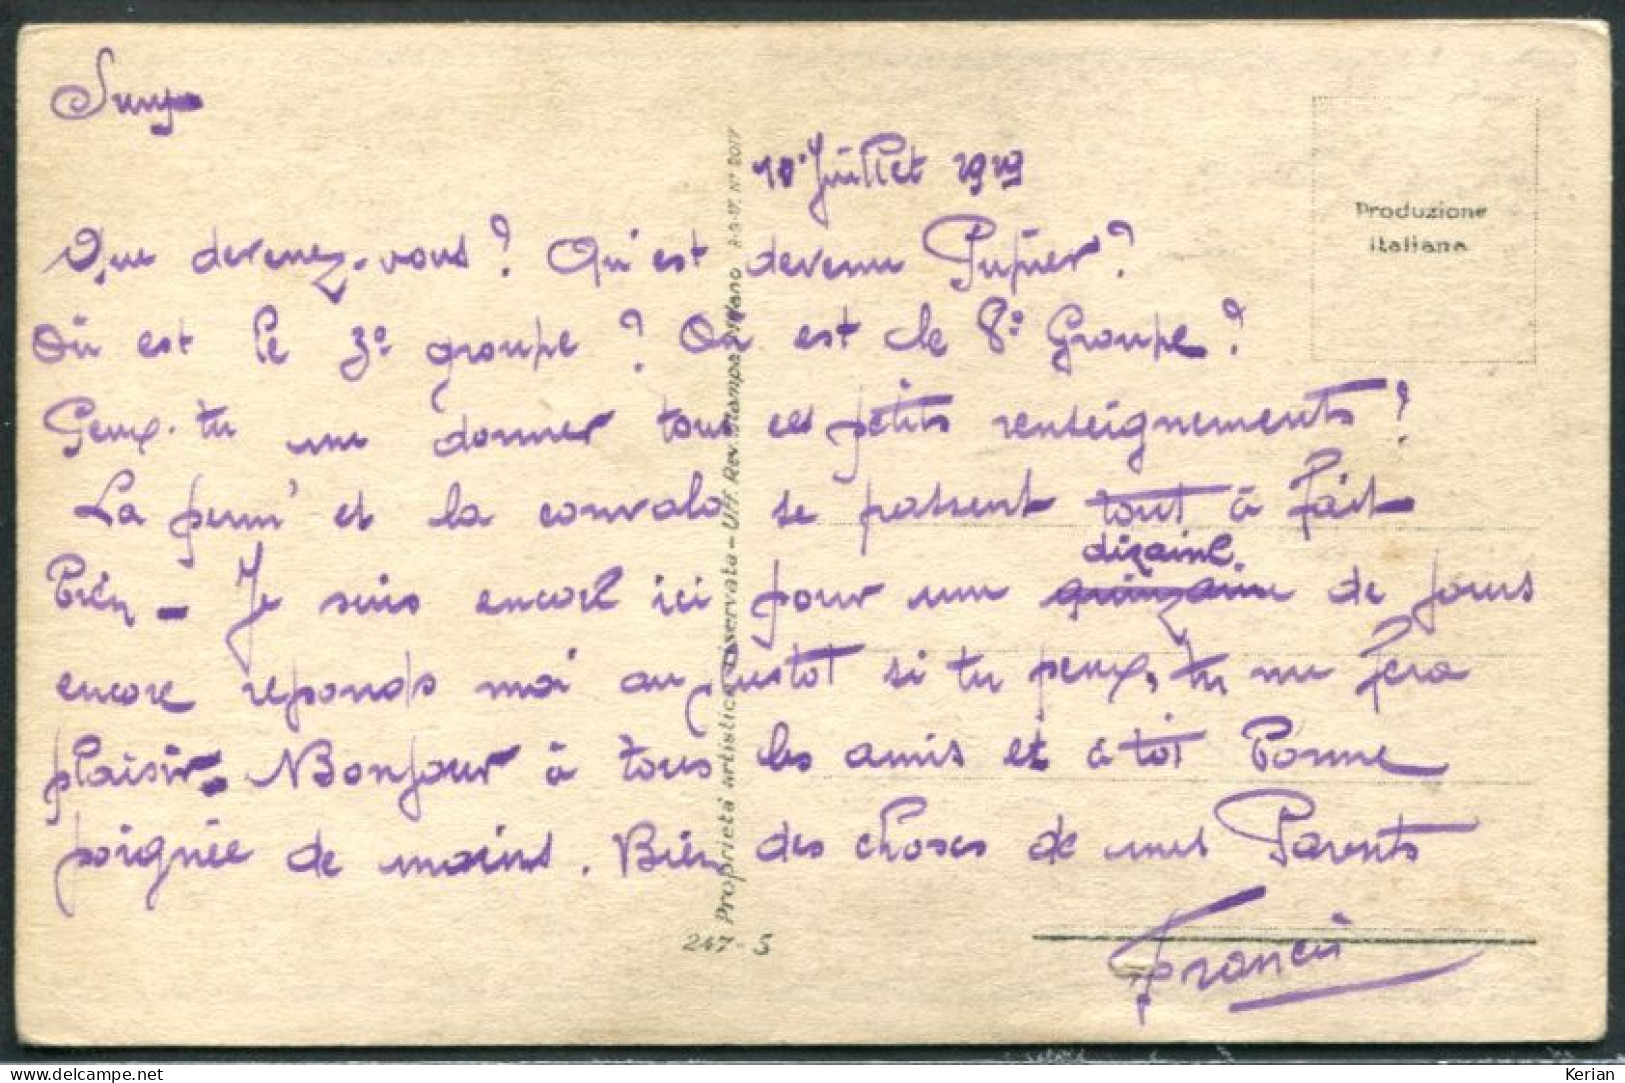 10 Juillet 1919
Produzione
italiana
Que devenez-vous ? Qu'est devenu Pupier ?
Où est le 3e groupe ? Où est le 8e Groupe ?
Peux-tu me donner tous ces petits renseignements ?
La perm' et la convalo se passent tout à fait
dizaine
bien - Je suis encore ici pour une quinzaine de jours
encore reponds moi au plustot si tu peux, tu me fera
plaisir. Bonjour à tous les amis et à toi bonne
poignée de mains. Bien des choses de mes Parents
Francis
Proprietà artistica riservata - Uff. Rev. Stampa Milano 2-5-17, No 2017
247-5
Kerian